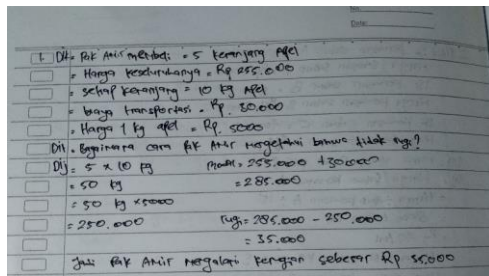 No.
Date:
1. Dik = Pak Amir membeli = 5 keranjang Apel
= Harga keseluruhanya = Rp 255.000
= setiap keranjang = 10 kg Apel
= biaya transportasi = Rp. 30.000
= Harga 1 kg apel = Rp. 5000
Dit = Bagaimana cara Pak Amir mengetahui bahwa tidak rugi?
Dij = 5 x 10 kg modal = 255.000 + 30.000
= 50 kg = 285.000
= 50 kg x 5000
= 250.000 rugi = 285.000 - 250.000
= 35.000
Jadi Pak Amir mengalami kerugian sebesar Rp 35.000